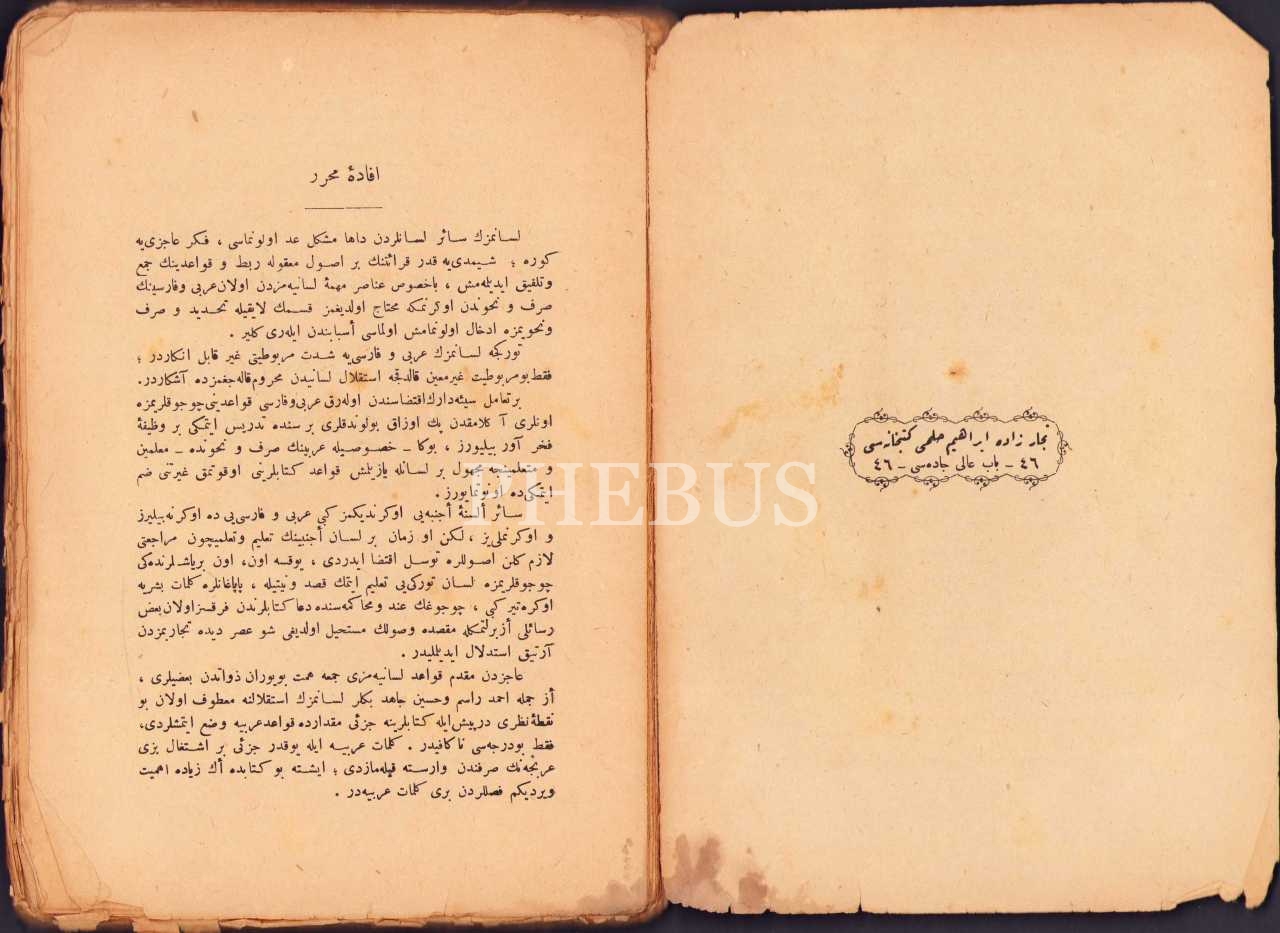 نجار زاده ابراهيم حلمى كتبخانه‌سى
٤٦ - باب عالى جاده‌سى - ٤٦
افادۀ محرر
لسانمزك سائر لسانلردن داها مشكل عد اولونماسى ، فكر عاجزى‌يه
كوره ؛ شيمدى‌يه قدر قرائتنك بر اصول معقوله ربط و قواعدينك جمع
وتلفيق ايديله‌مش ، باخصوص عناصر مهمۀ لسانيه‌مزدن اولان عربى وفارسينك
صرف و نحوندن اوكرنمكه محتاج اولديغمز قسمك لايقيله تحديد و صرف
ونحويمزه ادخال اولونمامش اولماسى أسبابندن ايله‌رى كلير .
توركجه لسانمزك عربى و فارسى‌يه شدت مربوطيتى غير قابل انكاردر ؛
فقط بو مربوطيت غيرمعين قالدقجه استقلال لسانيدن محروم قاله‌جغمزده آشكاردر.
برتعامل سيئه‌دارك اقتضاسندن اوله‌رق عربى وفارسى قواعدينى چوجوقلريمزه
اونلرى آ كلامقدن پك اوزاق بولوندقلرى بر سنده تدريس ايتمكى بر وظيفۀ
فخر آور بيليورز ، بوكا ـ خصوصيله عربينك صرف و نحونده ـ معلمين
و متعلمينجه مجهول بر لسانله يازيلمش قواعد كتابلرينى اوقوتمق غيرتنى ضم
ايتمكى‌ده اونوتمايورز .
سائر ألسنۀ أجنبيه‌يى اوكرنديكمز كبى عربى و فارسى‌يى ده اوكرنه‌بيليرز
و اوكرنملى‌يز ، لكن او زمان بر لسان أجنبينك تعليم وتعلميچون مراجعتى
لازم كلن اصوللره توسل اقتضا ايدردى ، يوقسه اون، اون برياشلرنده‌كى
چوجوقلريمزه لسان توركى‌يى تعليم ايتمك قصد ونيتيله ، پاپاغانلره كلمات بشريه
اوكره‌تير كبى ، چوجوغك عند ومحاكمه‌سنده دعا كتابلرندن فرقسز اولان بعض
رسائلى أزبرلتمكله مقصده وصولك مستحيل اولديغى شو عصر ديده تجاربمزدن
آرتيق استدلال ايديلمليدر .
عاجزدن مقدم قواعد لسانيه‌مزى جمعه همت بويوران ذواتدن بعضيلرى ،
أز جمله احمد راسم وحسين جاهد بكلر لسانمزك استقلالنه معطوف اولان بو
نقطۀ نظرى درپيش ايله كتابلرينه جزئى مقدارده قواعد عربيه وضع ايتمشلردى،
فقط بودرجه‌سى ناكافيدر . كلمات عربيه ايله بوقدر جزئى بر اشتغال بزى
عربجه‌نك صرفندن وارسته قيله‌مازدى ؛ ايشته بو كتابده أك زياده اهميت
ويرديكم فصللردن برى كلمات عربيه‌در .
PHEBUS